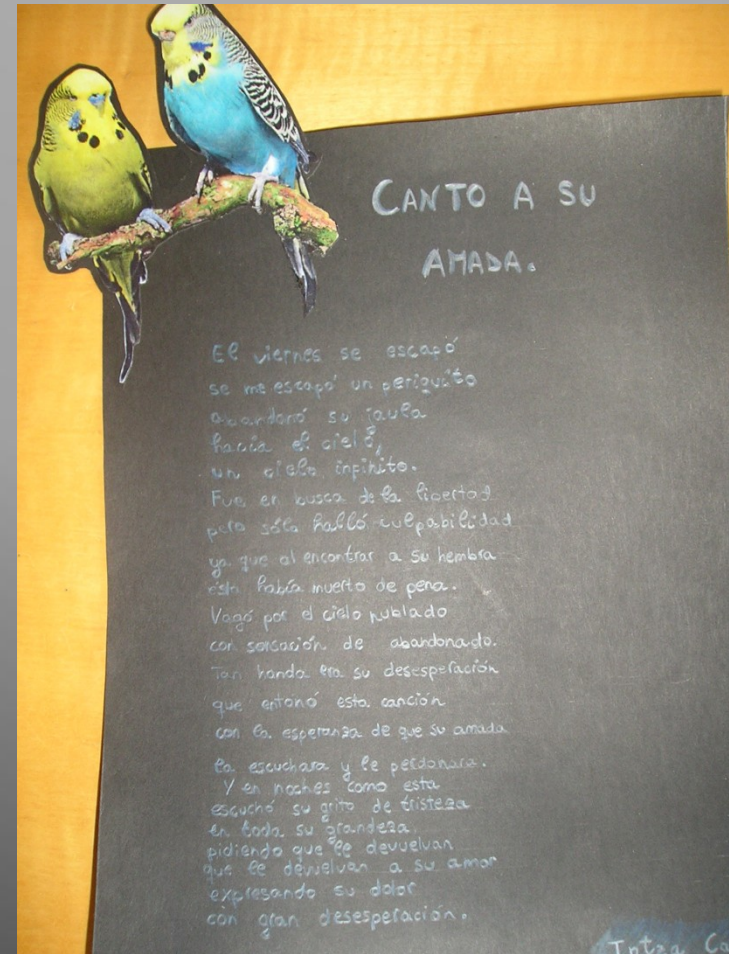 CANTO A SU
AMADA.
El viernes se escapó
se me escapó un periquito
abandonó su jaula
hacia el cielo,
un cielo infinito.
Fue en busca de la libertad
pero sólo halló culpabilidad
ya que al encontrar a su hembra
ésta había muerto de pena.
Vagó por el cielo nublado
con sensación de abandonado.
Tan honda era su desesperación
que entonó esta canción
con la esperanza de que su amada
la escuchara y le perdonara.
Y en noches como esta
escuchó su grito de tristeza
en toda su grandeza,
pidiendo que le devuelvan
que le devuelvan a su amor
expresando su dolor
con gran desesperación.
Intza Ca